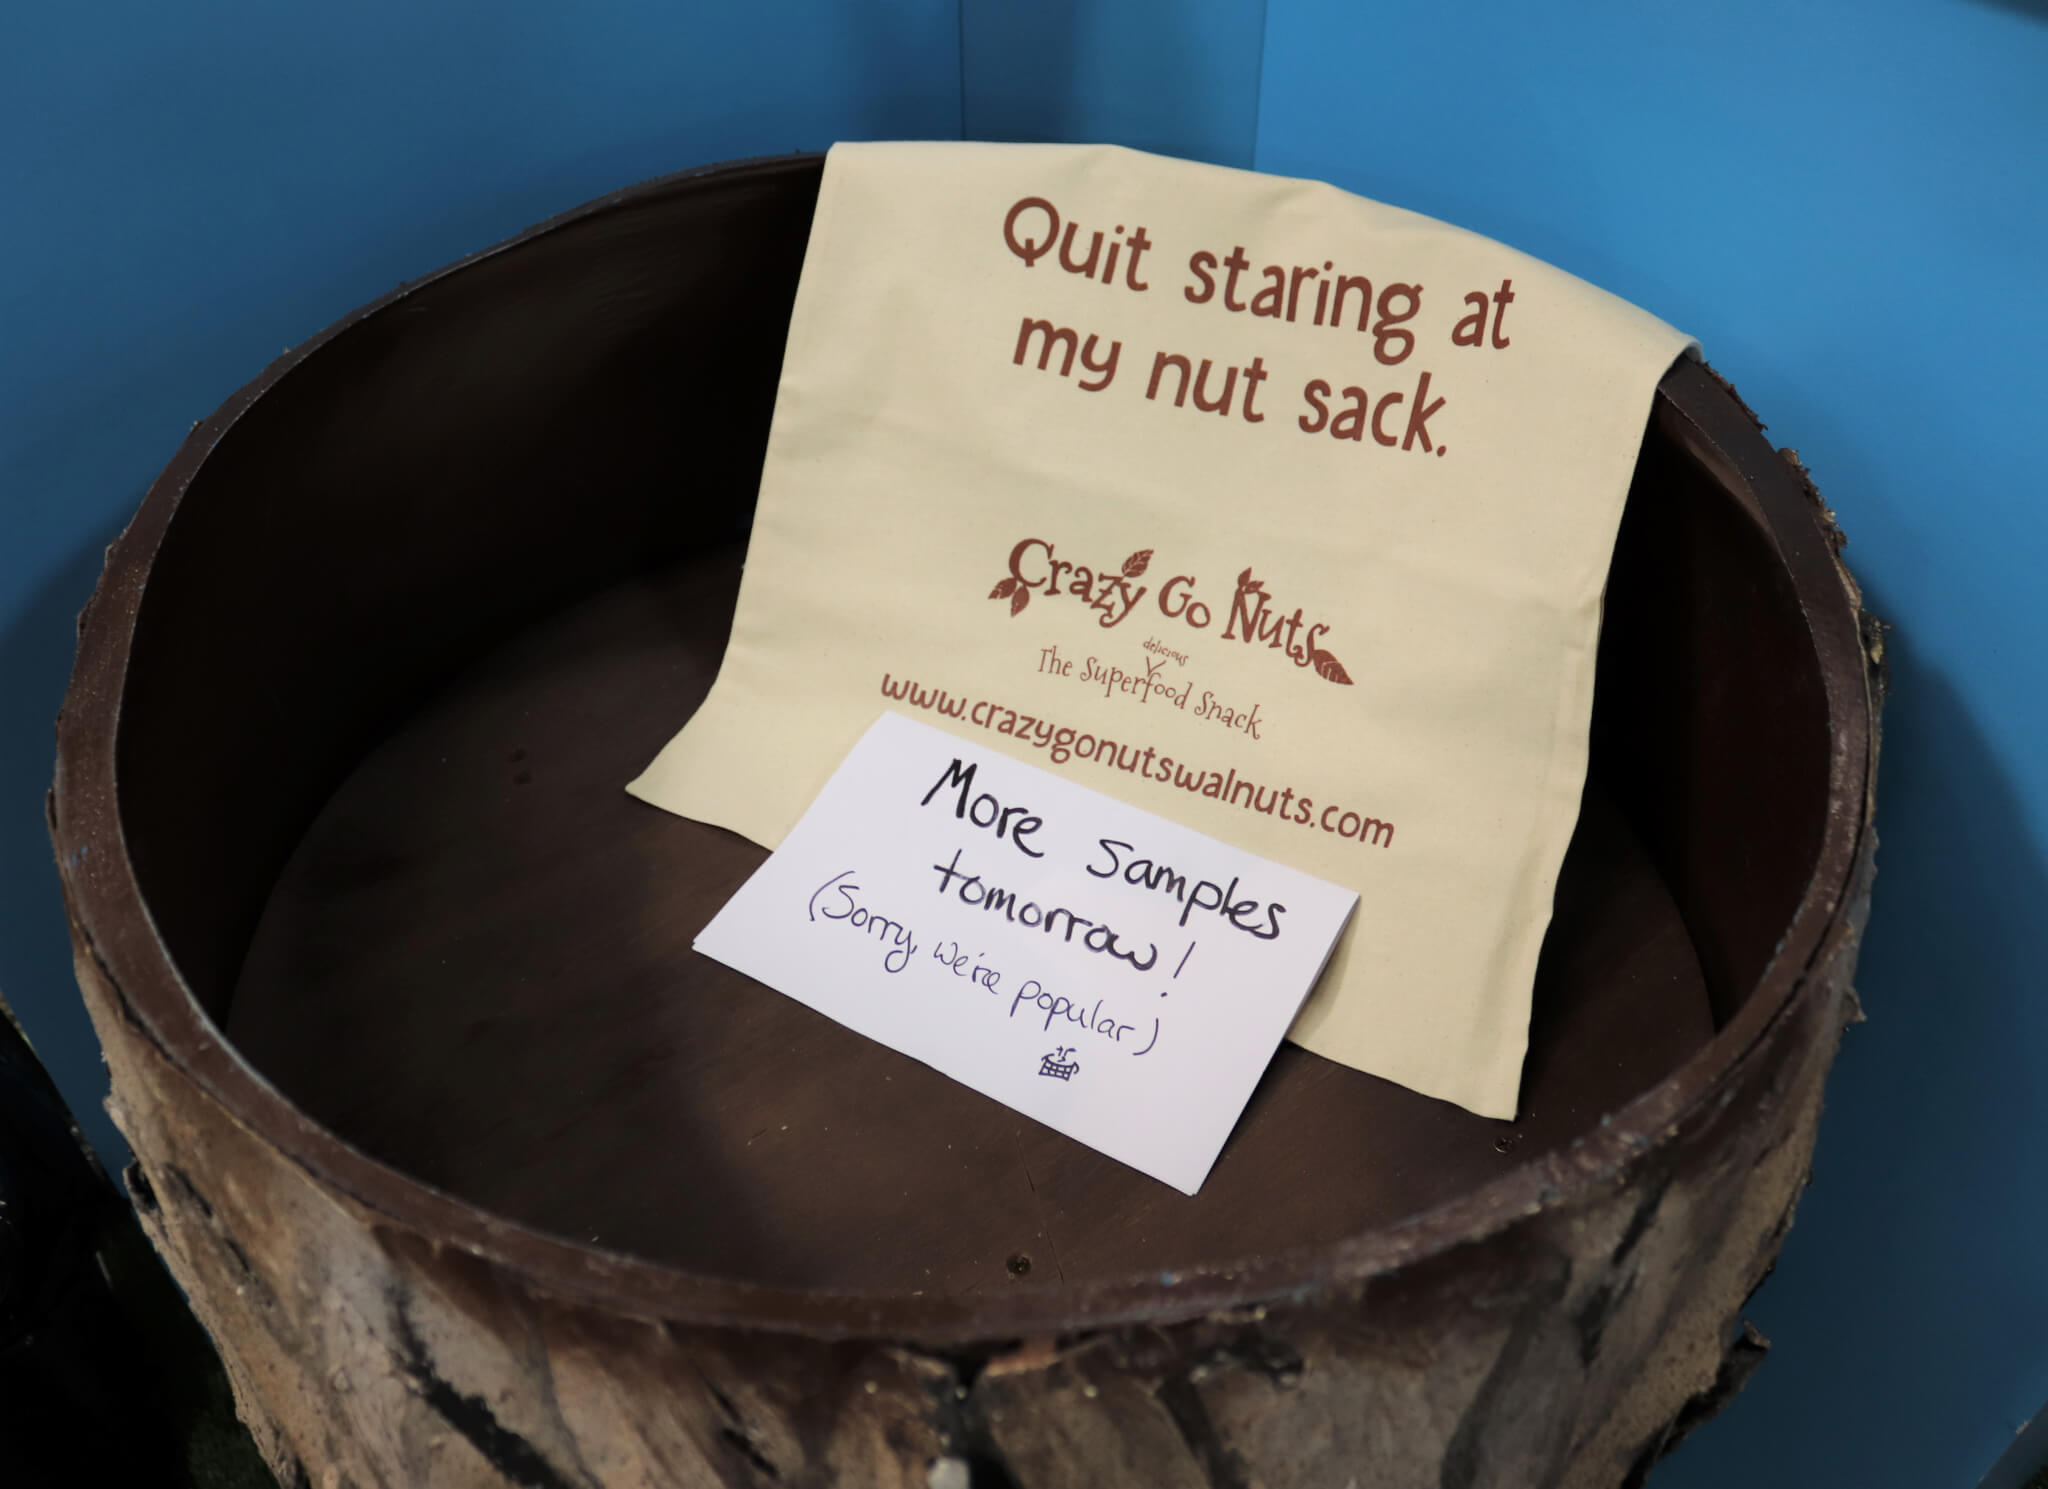 Quit staring at
my nut sack.
Crazy Go Nuts
delicious
The Superfood Snack
www.crazygonutswalnuts.com
More samples
tomorrow!
(Sorry, we're popular)